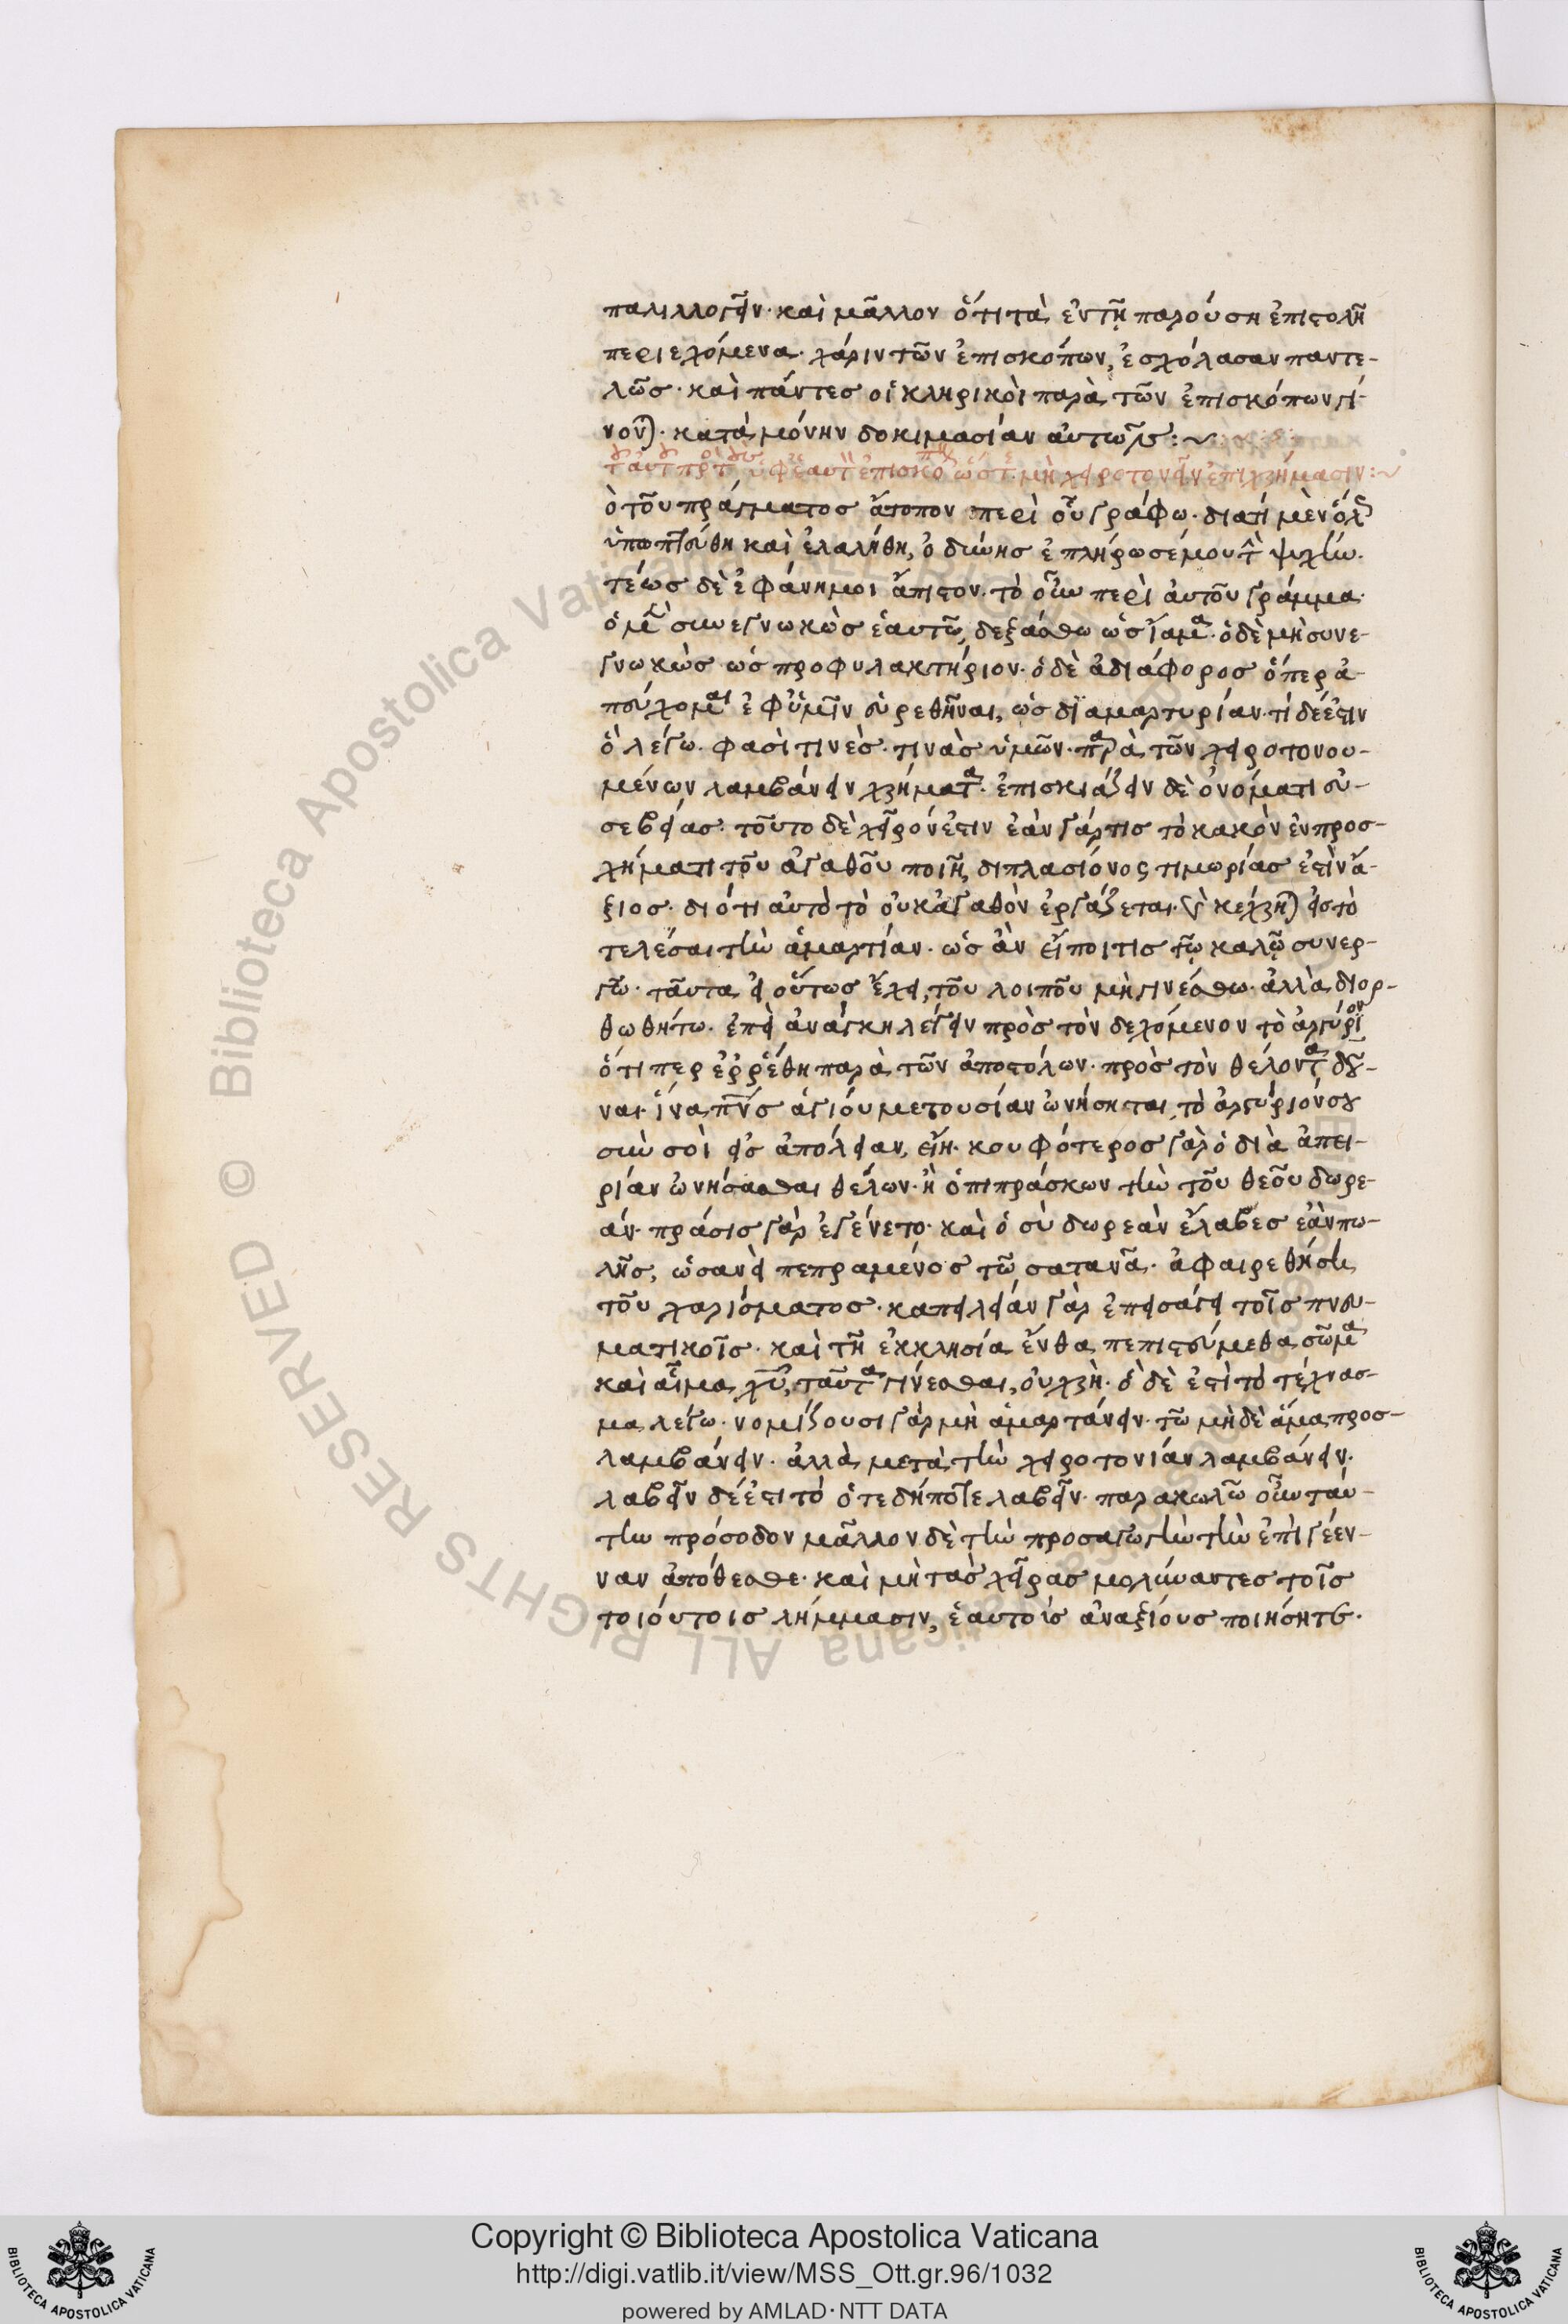 παλιλλογεῖν· καὶ μᾶλλον ὅτι τὰ ἐν τῇ παρούση ἐπιστολῆ
περιεχόμενα· χάριν τῶν ἐπισκόπων, ἐσχόλασαν παντε-
λῶς· καὶ πάντες οἱ κληρικοὶ παρὰ τῶν ἐπισκόπων γί-
νον· κατὰ μόνην δοκιμασίαν αὐτῶν :~
ἐπισκο ὥστ μὴ χειροτονεῖν ἐπὶ χρήμασιν :~
ὁ τοῦ πράγματος ἄτοπον περὶ οὗ γράφω· διατί μὲν ὅλ
ὑπωπτεύθη καὶ ἐλαλήθη, ὀδύνης ἐπλήρωσέ μου τ ψυχὴν.
τέως δὲ ἐφάνη μοι ἄπιστον· τὸ οὖν περὶ αὐτοῦ γράμμα·
ὁ μ συνεγνωκὼς ἑαυτῶ, δεξάσθω ὡς ἴαμα· ὁ δὲ μὴ συνε-
γνωκὼς ὡς προφυλακτήριον· ὁ δὲ ἀδιάφορος ὅπερ ἀ-
πεύχομαι ἐφ' ὑμῖν εὑρεθῆναι, ὡς διαμαρτυρίαν· τί δέ ἐστιν
ὃ λέγω· φασὶ τινὲς· τινὰς ὑμῶν· παρὰ τῶν χειροτονου-
μένων λαμβάνειν χρήματα· ἐπισκιάζειν δὲ ὀνόματι εὐ-
σεβείας· τοῦτο δὲ χεῖρόν ἐστιν ἐὰν γάρ τις τὸ κακὸν ἐν προσ-
χήματι τοῦ ἀγαθοῦ ποιῆ, διπλασίονος τιμωρίας ἐστὶν ἄ-
ξιος· διότι αὐτὸ τὸ οὐκ ἀγαθὸν ἐργάζεται· κέχρη εἰς τὸ
τελέσαι τὴν ἁμαρτίαν· ὡς ἂν εἴποι τις τῷ καλῷ συνερ-
γῶ· ταῦτα εἰ οὕτως ἔχει, τοῦ λοιποῦ μὴ γινέσθω· ἀλλὰ διορ-
θωθήτω· ἐπεὶ ἀνάγκη λέγειν πρὸς τὸν δεχόμενον τὸ ἀργύριον
ὅτι περ ἐῤῥέθη παρὰ τῶν ἀποστόλων· πρὸς τὸν θέλοντα δοῦ-
ναι· ἵνα πνς ἁγίου μετουσίαν ὠνήσηται, τὸ ἀργύριόν σου
σὺν σοὶ εἰς ἀπώλειαν, εἴη· κουφότερος γὰρ ὁ διὰ ἀπει-
ρίαν ὠνήσασθαι θέλων· ἢ ὁ πιπράσκων τὴν τοῦ θεοῦ δωρε-
άν· πράσις γὰρ ἐγένετο· καὶ ὃ σὺ δωρεὰν ἔλαβες ἐὰν πω-
λῆς, ὡσανεὶ πεπραμένος τῶ σατανᾶ· ἀφαιρεθήση
τοῦ χαρίσματος· καπηλείαν γὰρ ἐπεισάγει τοῖς πνευ-
ματικοῖς· καὶ τῆ ἐκκλησία ἔνθα πεπιστεύμεθα σῶμα
καὶ αἷμα χυ, ταῦτα γίνεσθαι, οὐ χρὴ· ὃ δὲ ἐστὶ τὸ τέχνασ-
μα λέγω· νομίζουσι γὰρ μὴ ἁμαρτάνειν· τῶ μὴ δὲ ἅμα προσ-
λαμβάνειν· ἀλλὰ μετὰ τὴν χειροτονίαν λαμβάνειν·
λαβεῖν δέ ἐστι τὸ ὅτε δήποτε λαβεῖν· παρακαλῶ οὖν ταύ-
την πρόσοδον μᾶλλον δὲ τὴν προσαγωγὴν τὴν ἐπὶ γέεν-
ναν ἀπόθεσθε· καὶ μὴ τὰς χεῖρας μολύναντες τοῖς
τοιούτοις λήμμασιν, ἑαυτοὺς ἀναξίους ποιήσητε·
Copyright © Biblioteca Apostolica Vaticana
http://digi.vatlib.it/view/MSS_Ott.gr.96/1032
powered by AMLAD·NTT DATA
BIBLIOTECA APOSTOLICA VATICANA
BIBLIOTECA APOSTOLICA VATICANA